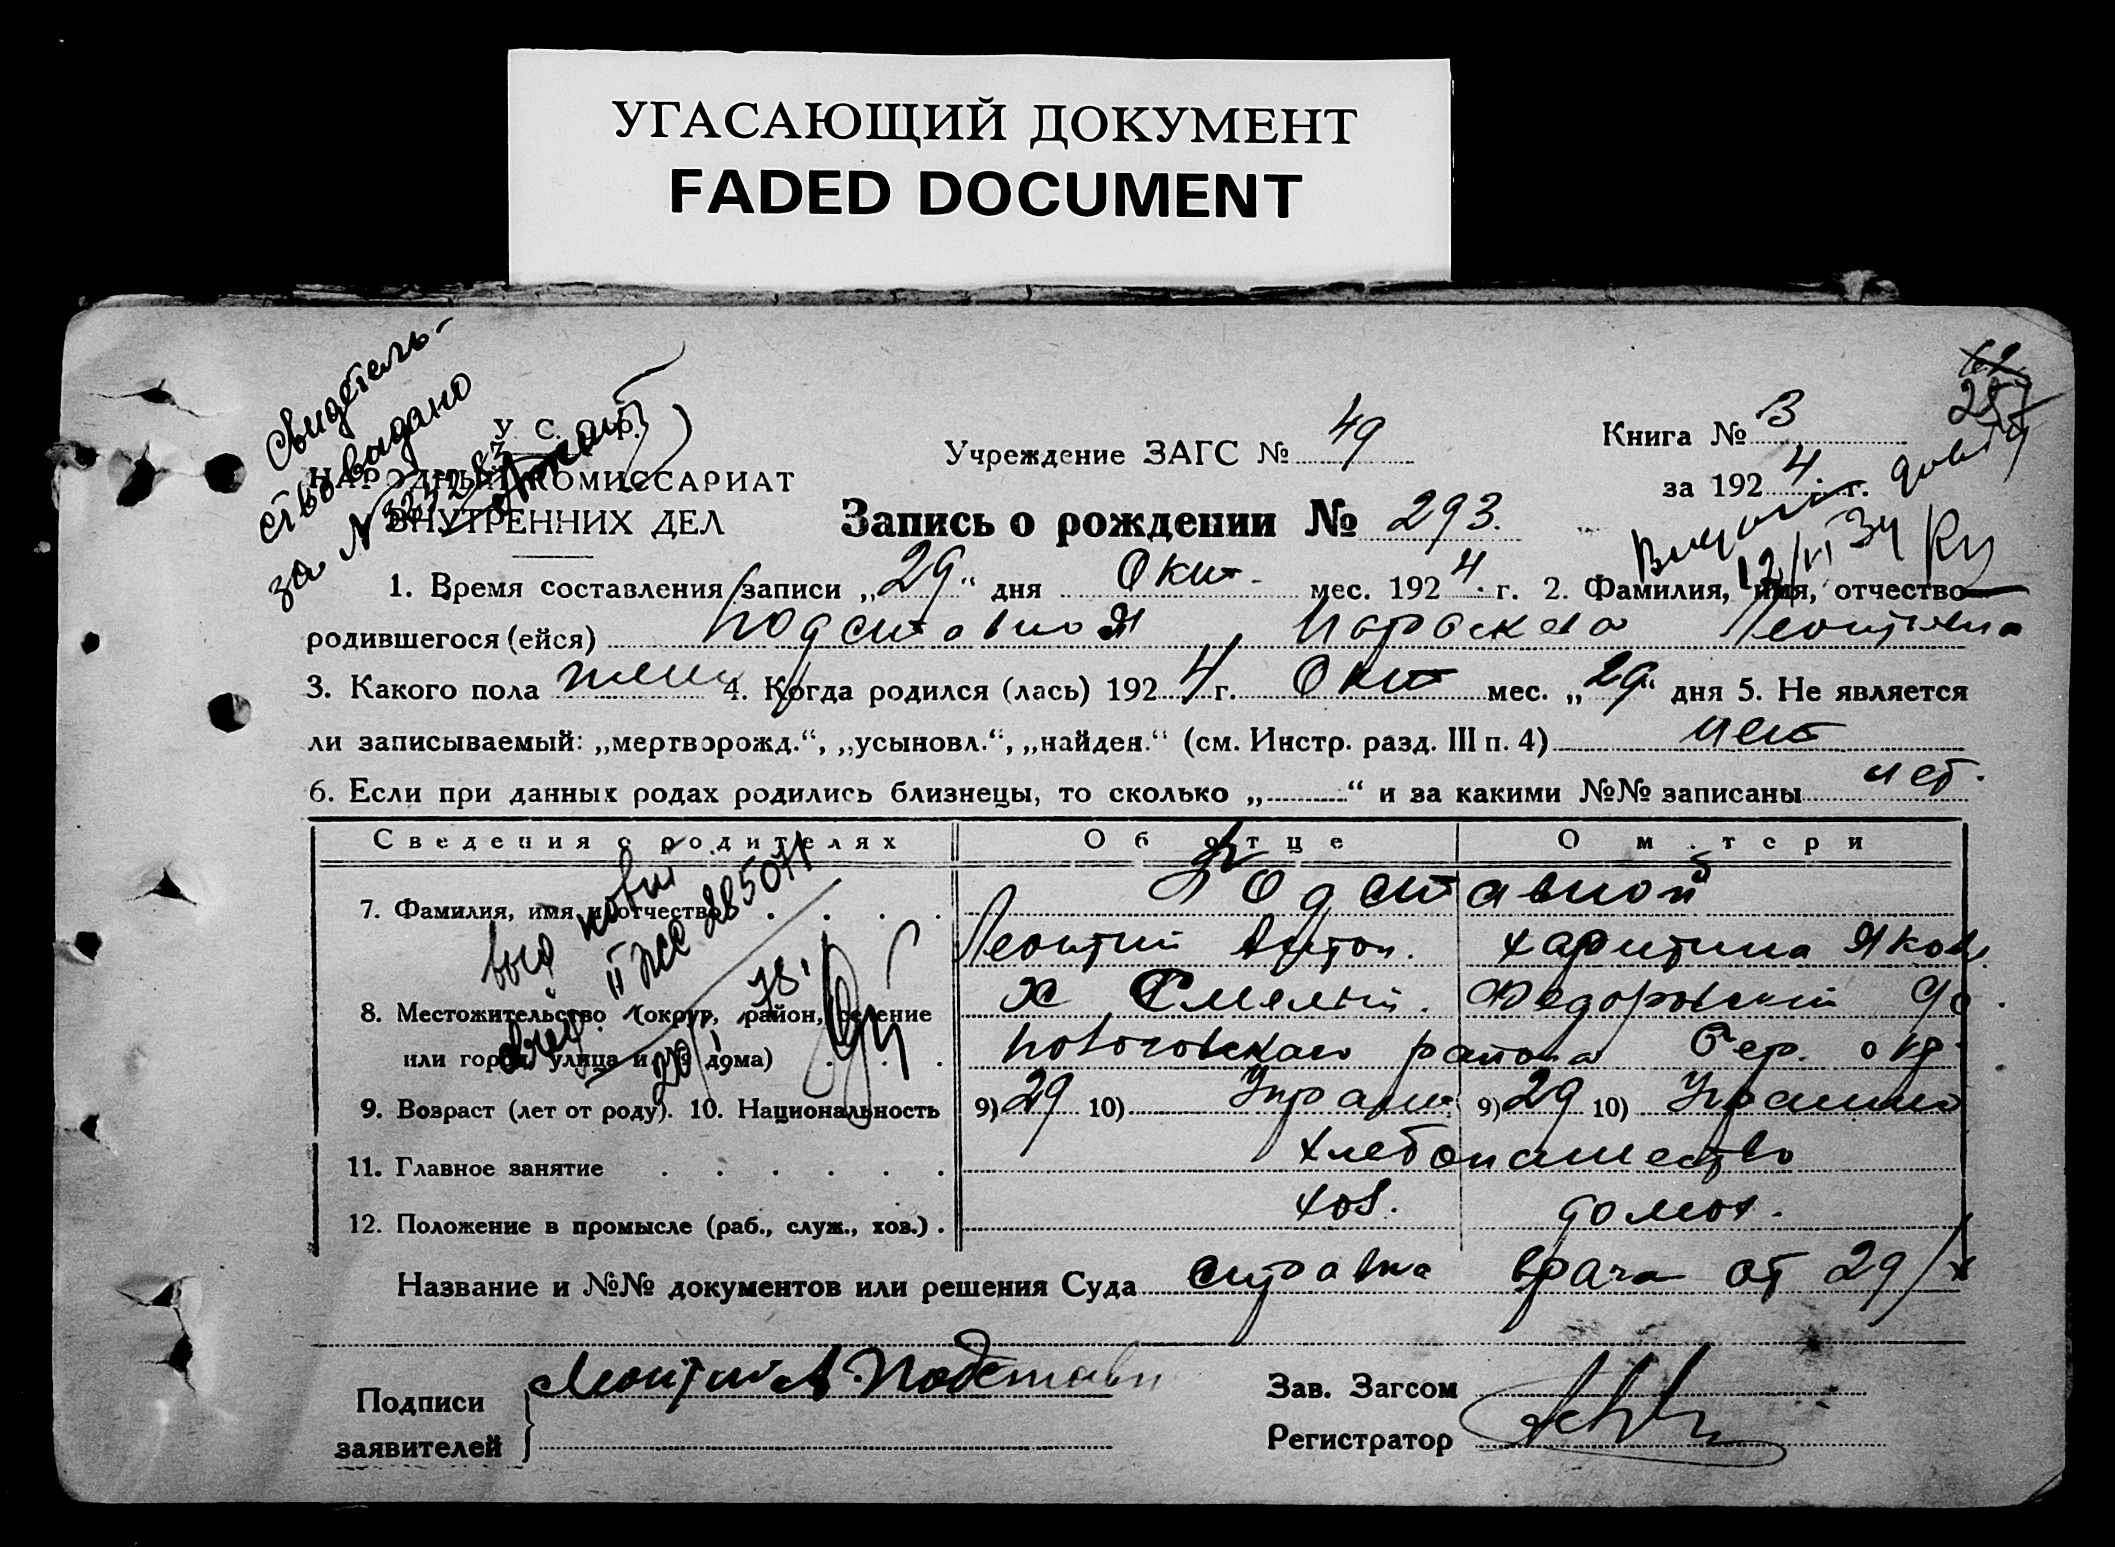 УГАСАЮЩИЙ ДОКУМЕНТ
FADED DOCUMENT
Свидетель-
ство выдано
за №
У. С. С. Р.
НАРОДНЫЙ КОМИССАРИАТ
ВНУТРЕННИХ ДЕЛ
Учреждение ЗАГС № 49
Книга № 3
за 1924 г.
Запись о рождении № 293.
12/VI 34
1. Время составления записи „29“ дня Окт. мес. 1924 г. 2. Фамилия, имя, отчество
родившегося (ейся) Подставной Параскева Леонтьевна
3. Какого пола женс 4. Когда родился (лась) 1924 г. Окт мес. „29“ дня 5. Не является
ли записываемый: „мертворожд.“, „усыновл.“, „найден.“ (см. Инстр. разд. III п. 4) нет
6. Если при данных родах родились близнецы, то сколько „..........“ и за какими №№ записаны нет.
Сведения о родителях Об отце О матери
7. Фамилия, имя и отчество Подставной
Леонтий Антон. Харитина Яков.
8. Местожительство (округ, район, селение х Смелый. Федоровский
или город, улица и № дома) района Пер. окр.
9. Возраст (лет от роду). 10. Национальность 9) 29 10) Украин 9) 29 10) Украинка
11. Главное занятие хлебопашество
12. Положение в промысле (раб., служ., хоз.) хоз. домох.
Название и №№ документов или решения Суда справка врача от 29/X
Подписи
заявителей
Леонтий А. Подставн
Зав. Загсом
Регистратор